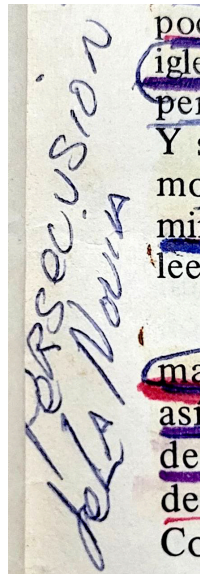 PERSECUSION
de LA NOVIA
poc
igle
per
Y s
mo
mi
lee
ma
asi
de
de
Co